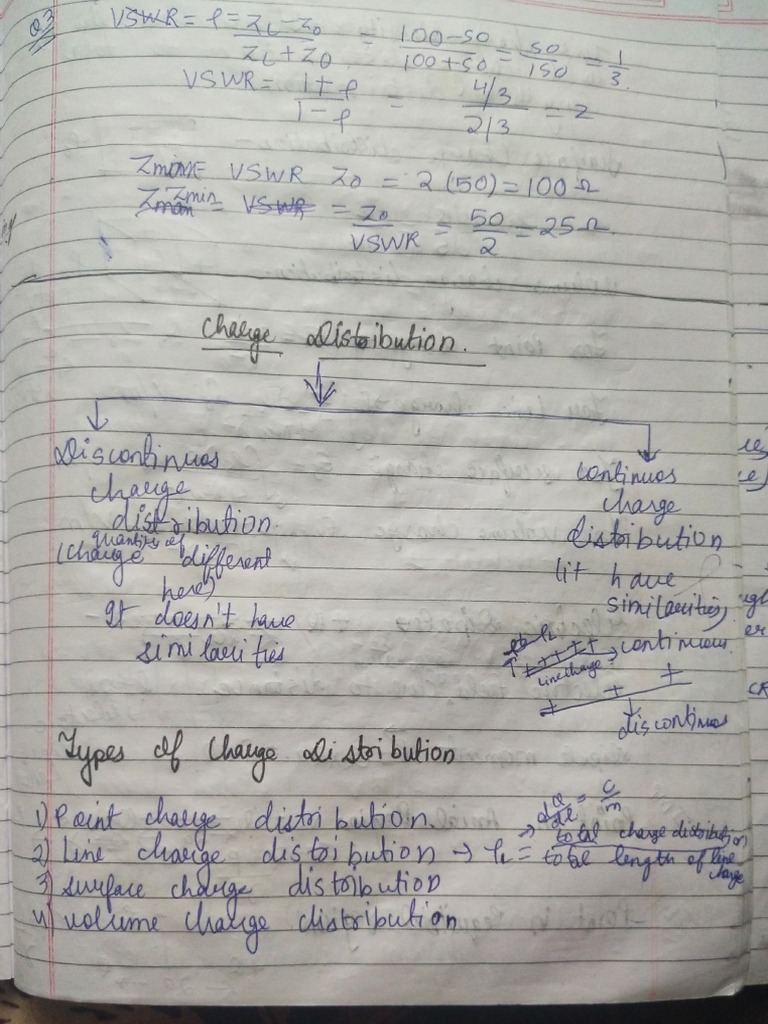 Q3 VSWR = ρ = ZL - Z0 / ZL + Z0 = 100 - 50 / 100 + 50 = 50 / 150 = 1 / 3.
VSWR = 1 + ρ / 1 - ρ = 4/3 / 2/3 = 2
= VSWR Z0 = 2 (50) = 100 Ω
Zmin
Zmax = VSWR = Z0 / VSWR = 50 / 2 = 25 Ω.
Charge Distribution.
Discontinuos
charge
distribution
(charge quantity of different
here)
It doesn't have
similarities
continuos
charge
distribution
(it have
similarities)
ρL
+ + + + + continuous
line charge
+ + +
discontinuos
Types Of Charge Distribution
1) Point charge distribution.
2) Line charge distribution → ρL = total charge distribution / total length of line charge
→ dQ / dl = C / m
3) surface charge distribution
4) volume charge distribution